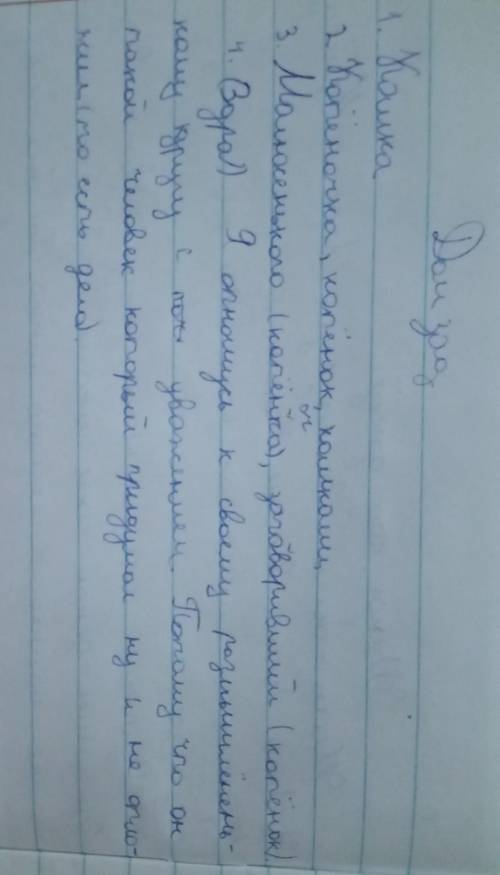 Дом зад
1. Кошка
2. Котёночка, котёнок, кошками
3. Маленького (котёнка), заговоривший (котёнок)
4. (Задра) Я отношусь к своему размышленень-
кому другу с уважением. Потому что он
такой человек который придумал ну и не отло-
жил (то есть дело).